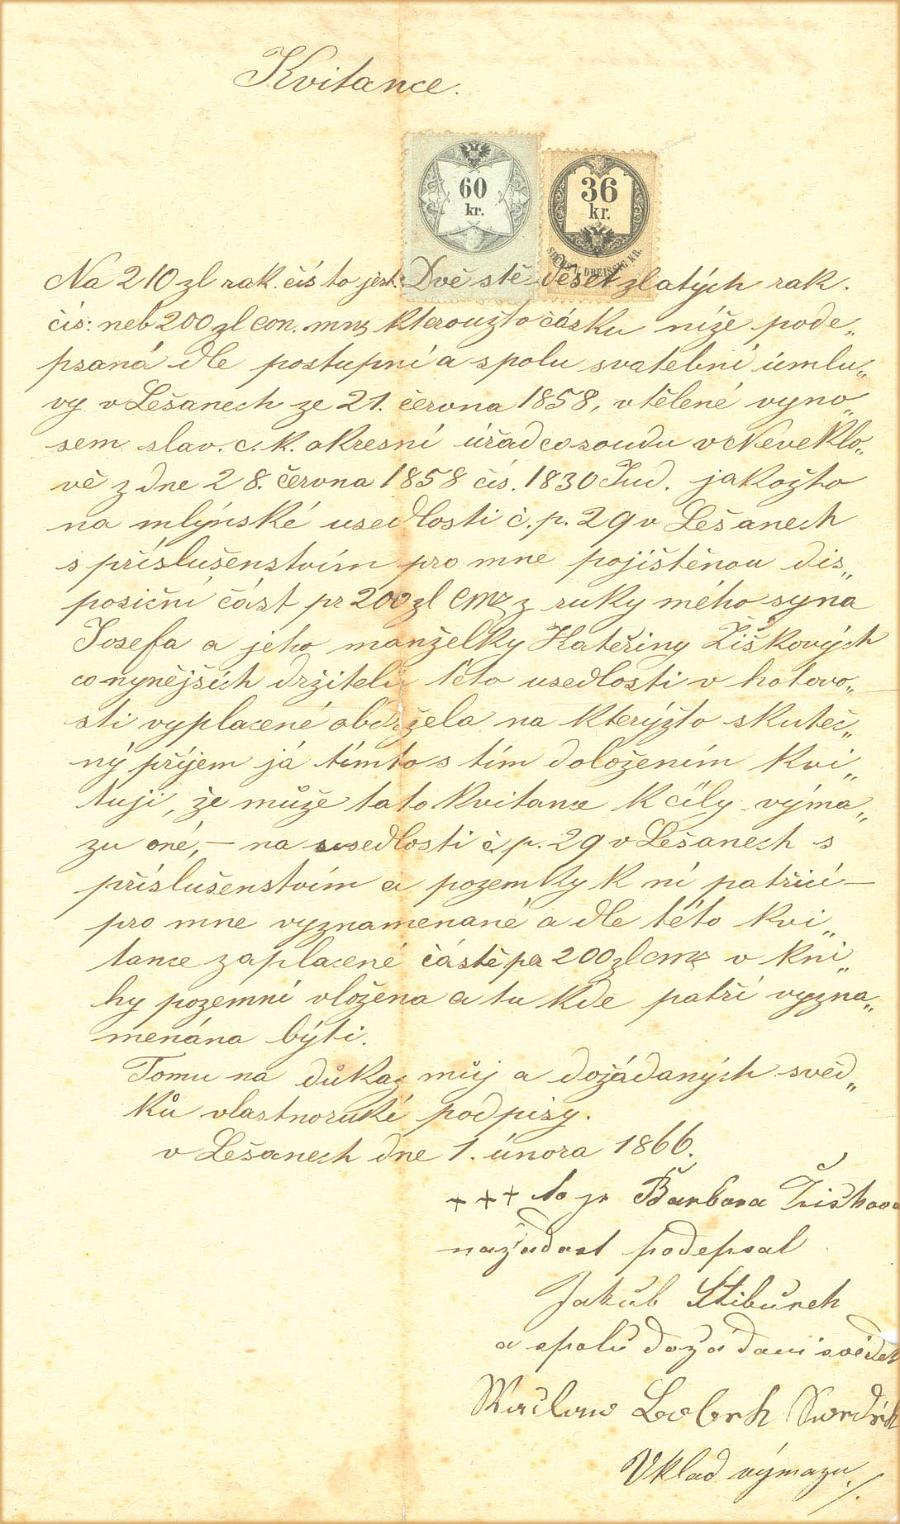 Kvitance.
60
kr.
36
kr.
SECHS U. DREISSIG KR.
Na 210 zl rak. čís to jest: Dvě stě deset zlatých rak.
čís: neb 200 zl con. mnz kteroužto částku níže pode„
psaná dle postupní a spolu svatební úmlu„
vy v Lešanech ze 21. června 1858, vtělené vyno„
sem slav. c. k. okresní úřad co soudu v Neveklo„
vě z dne 28. června 1858 čís. 1830 Jud. jakožto
na mlýnské usedlosti č. p. 29 v Lešanech
s příslušenstvím pro mne pojištěnou dis„
posiční část pr 200 zl Cmz z ruky mého syna
Josefa a jeho manželky Kateřiny Žiškových
co nynějších držitelů této usedlosti v hotovo„
sti vyplacené obdržela na kterýžto skuteč„
ný příjem já tímto s tím doložením kvi„
tuji, že může tato kvitance k cíly výma„
zu oné, — na usedlosti č. p. 29 v Lešanech s
příslušenstvím a pozemky k ní patřící —
pro mne vyznamenané a dle této kvi„
tance zaplacené částě pr 200 zl cmz v kni„
hy pozemní vložena a tu kde patří vyzna„
menána býti.
Tomu na důkaz můj a dožádaných svěd„
ků vlastnoruké podpisy.
v Lešanech dne 1. února 1866.
+++ to je Barbora Žiškova
na žádost podepsal
Jakub Stibůrek
a spolu dožádaní svědek
Waclaw
Vklad výmazu ./.